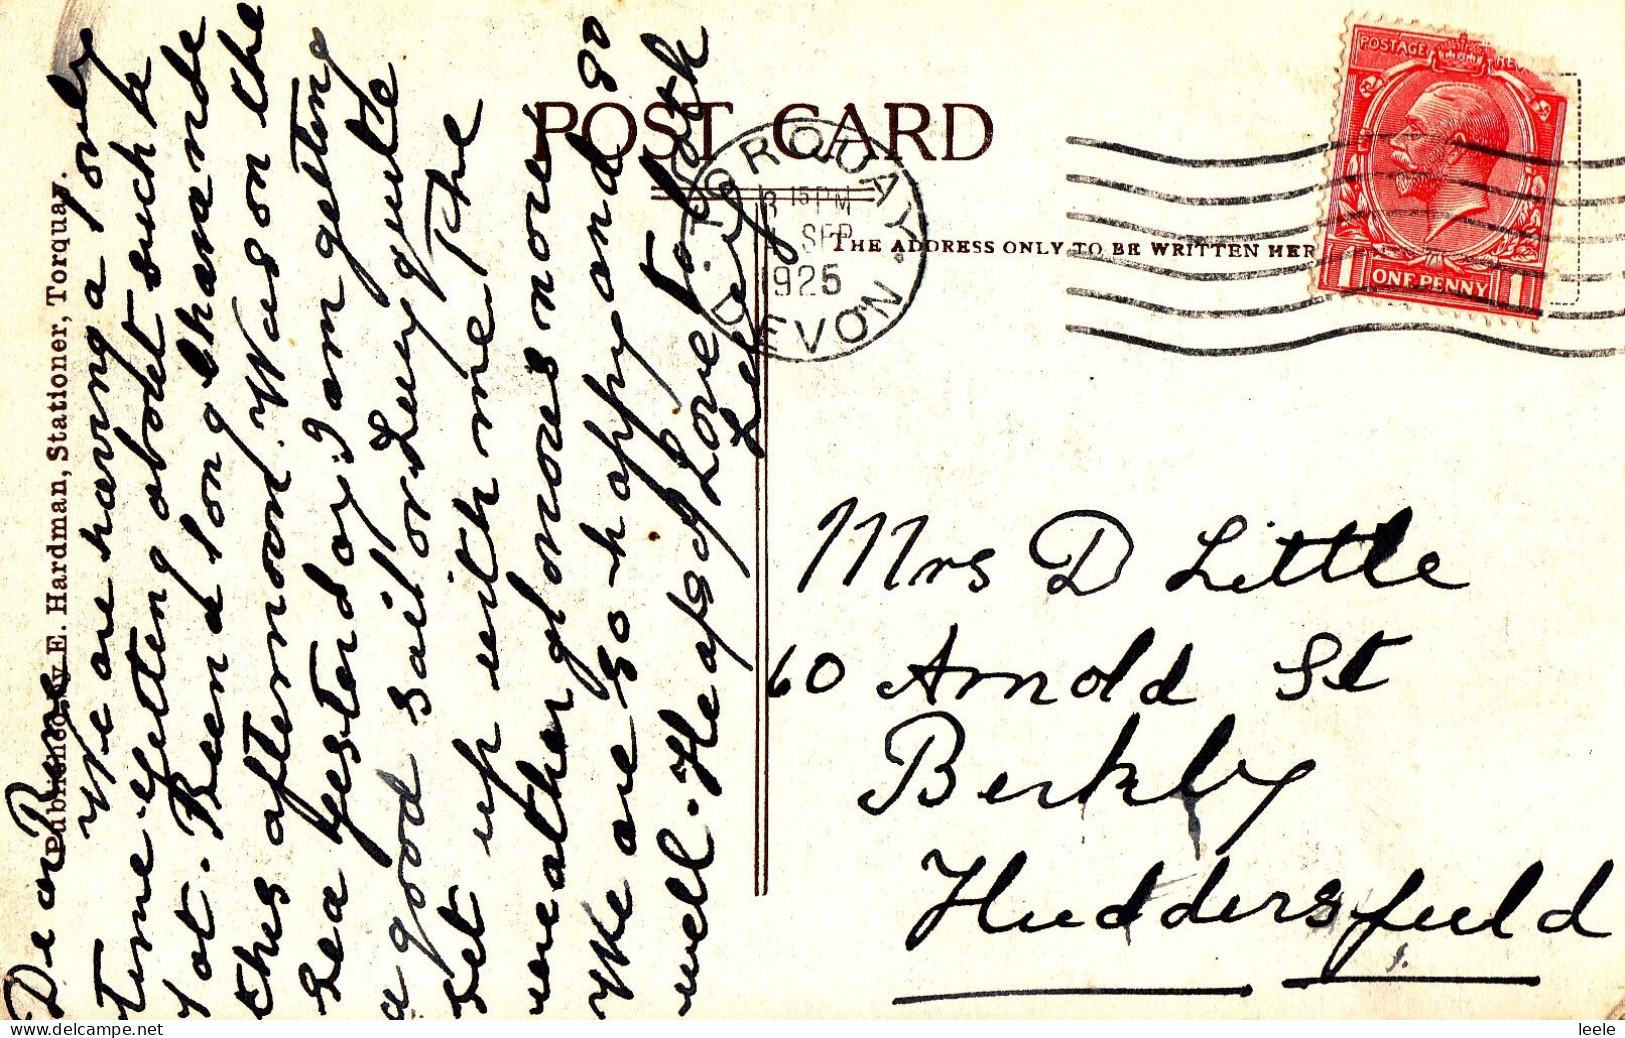 POST CARD
THE ADDRESS ONLY TO BE WRITTEN HER
TORQUAY
15 PM
SEP
1925
DEVON
POSTAGE REV
1 ONE PENNY 1
Published by E. Hardman, Stationer, Torquay.
Dear
We are having a
time getting about such a
lot. Been a long
this afternoon. Was on the
Sea yesterday. I am getting
a good sailor Lucy quite
set up with me. The
weather glorious now
We are so happy and so
well. Heaps of Love to both
Mrs D Little
60 Arnold St
Berkly
Huddersfield
delcampe.net
leele